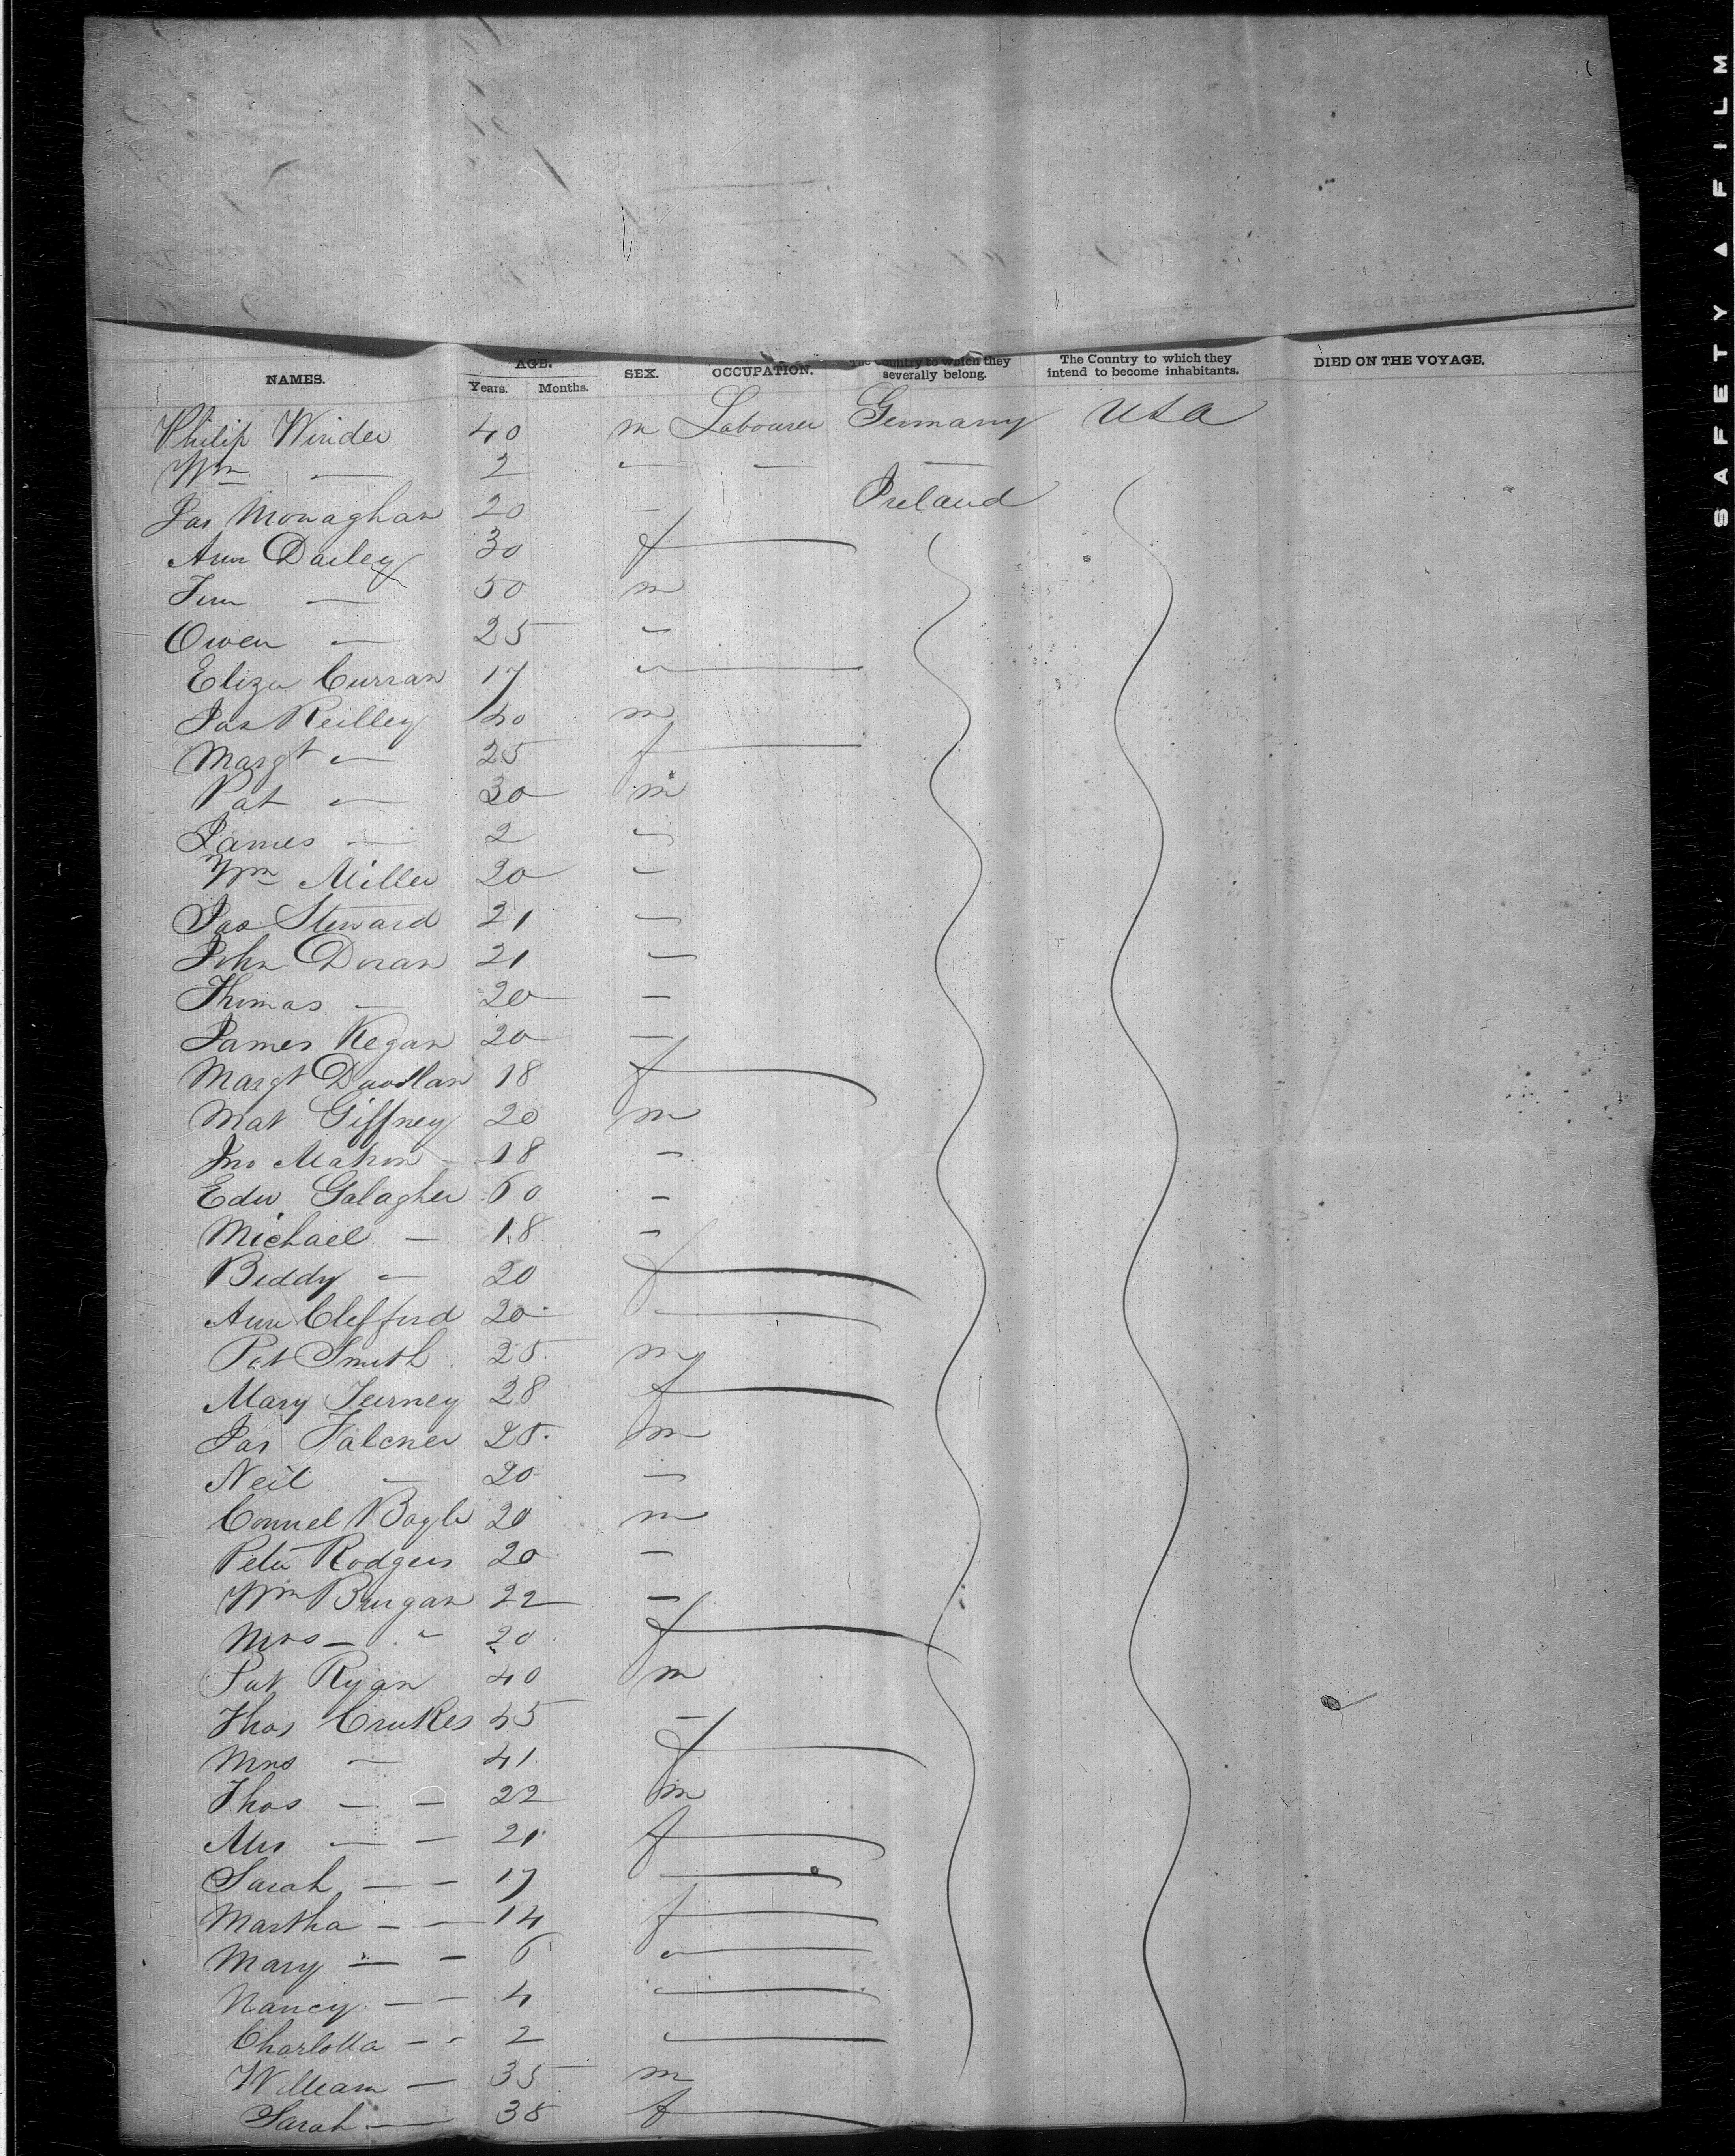 NAMES. AGE. Years. Months. SEX. OCCUPATION. The Country to which they severally belong. The Country to which they intend to become inhabitants. DIED ON THE VOYAGE.
Philip Winder 40 m Labourer Germany USA
Wm — 2 — — —
Jas Monaghan 20 — Ireland
Ann Dailey 30 f
Jim — 50 m
Owen — 25 —
Eliza Curran 17 —
Jas Reilley 40 m
Margt — 25 f
Pat — 30 m
James — 2 —
Wm Miller 20 —
Jas Steward 21 —
John Doran 21 —
Thomas — 20 —
James Kegan 20 —
Margt 18 f
Mat Giffney 20 m
Jno Mahon 18 —
Edw. Galagher 60 —
Michael — 18 —
Biddy — 20 f
Ann Clifford 20 —
Pat Smith 25 m
Mary Tierney 28 f
Jas Falcner 25 m
Neil — 20 —
Connel Bogle 20 m
Peter Rodgers 20 —
Wm 22 —
Mrs — " 20 f
Pat Ryan 40 m
Thos Crukes 45 —
Mrs — 41 f
Thos — — 22 m
Mrs — — 21 f
Sarah — — 17 —
Martha — — 14 f
Mary — — 6 —
Nancy — — 4 —
Charlotta — — 2 —
William — 35 m
Sarah — 38 f
SAFETY ▲ FILM